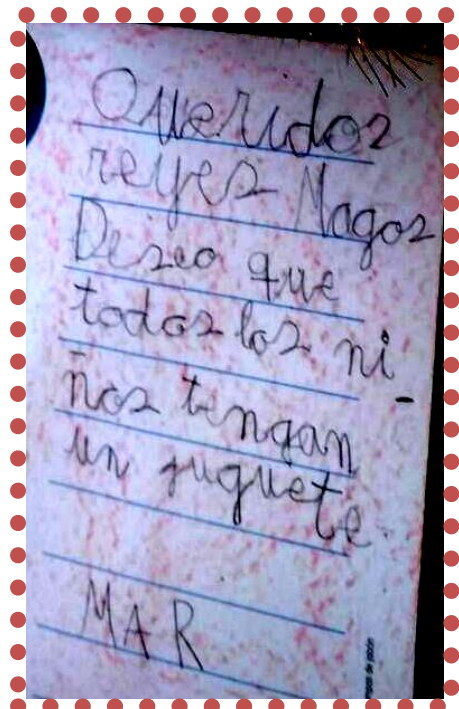 Queridos
reyes Magos
Deseo que
todos los ni-
ños tengan
un juguete
MAR